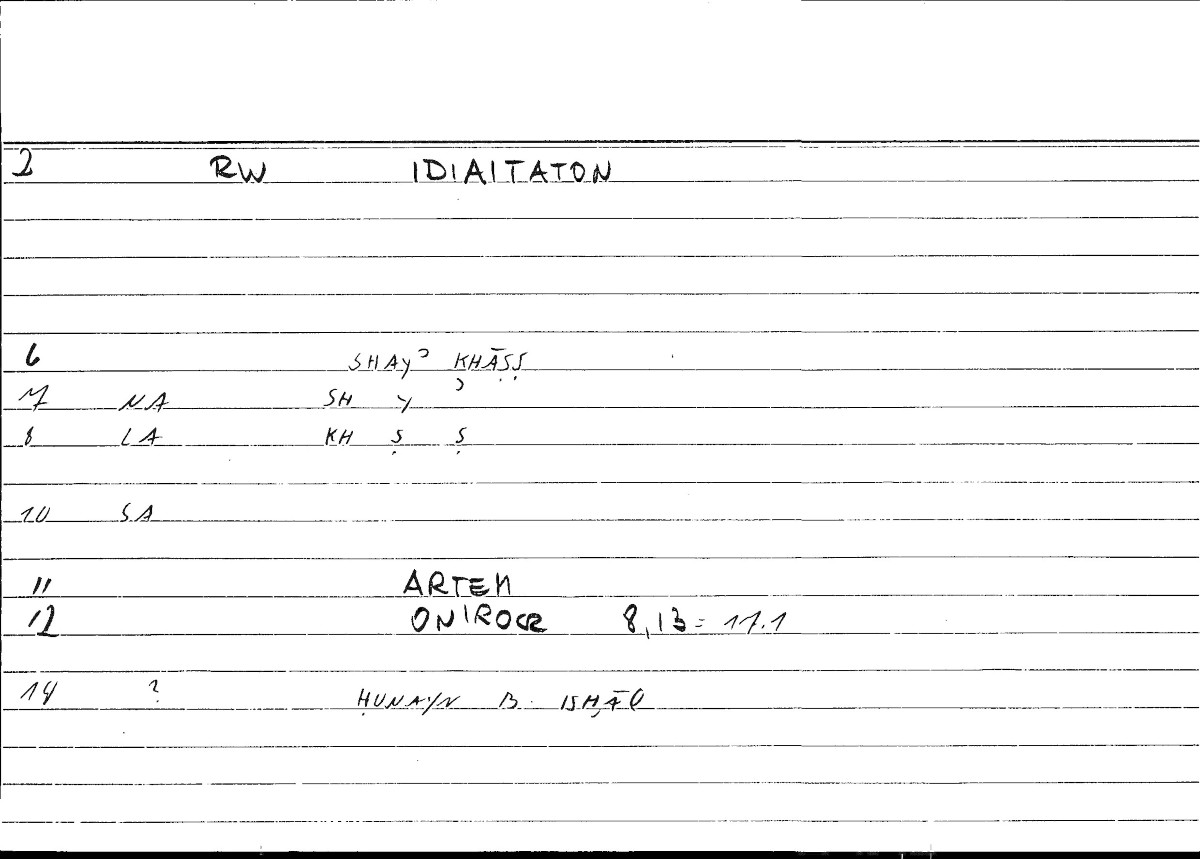 2 RW IDIAITATON
6 SHAYʾ KHĀṢṢ
7 NA SH Y ʾ
8 LA KH Ṣ Ṣ
10 SA
11 ARTEM
12 ONIROCR 8,13 = 17.1
14 ? ḤUNAYN B. ISḤĀQ